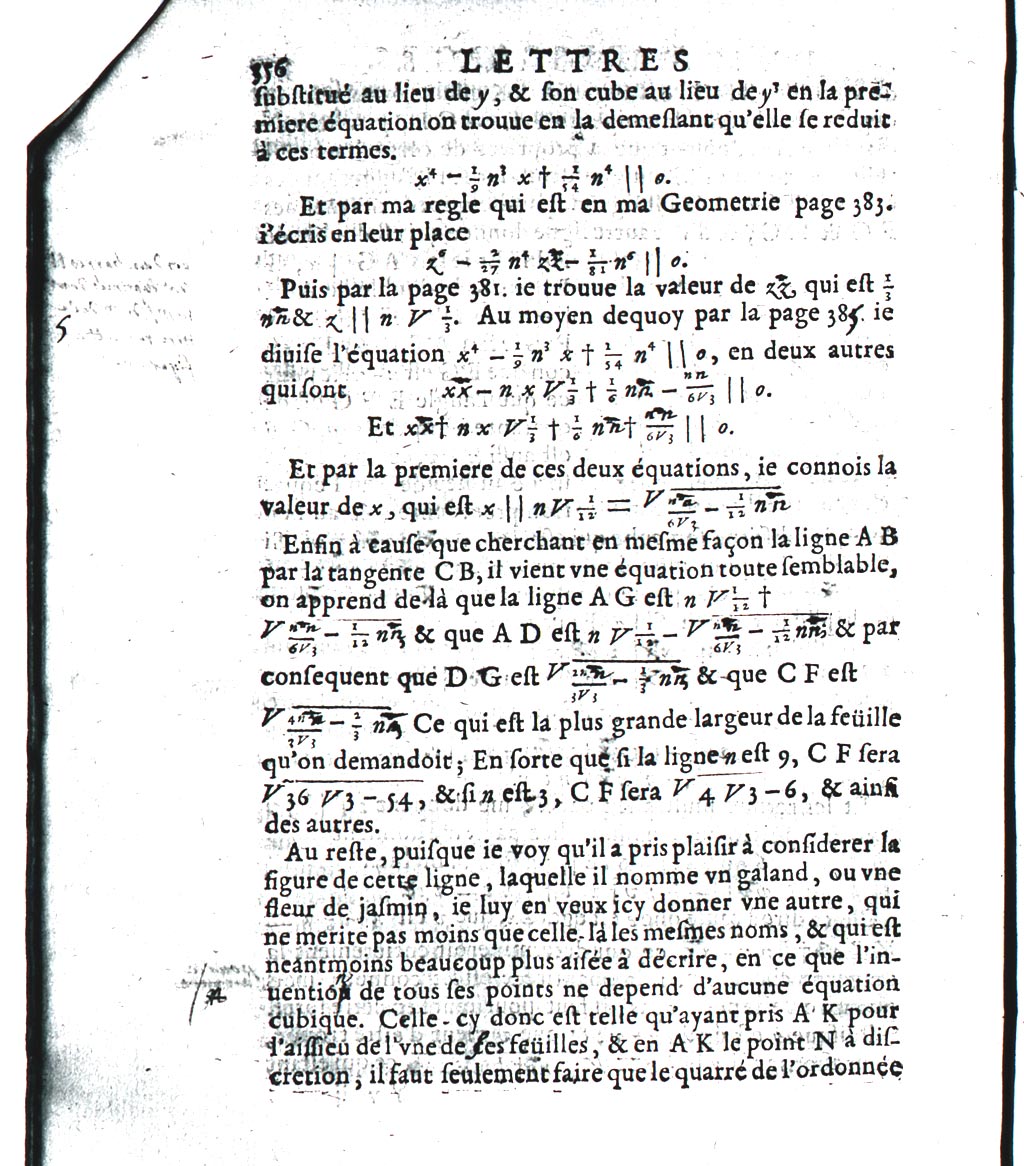 356 LETTRES
ſubſtitué au lieu de y, & ſon cube au lieu de y³ en la pre-
miere équation on trouue en la demeſlant qu'elle ſe reduit
à ces termes.
x⁴ − 1/9 n³ x † 1/54 n⁴ || 0.
Et par ma regle qui eſt en ma Geometrie page 383.
i'écris en leur place
z⁶ − 2/27 n⁴ zz − 1/81 n⁶ || 0.
Puis par la page 381. ie trouue la valeur de zz, qui eſt 1/3
nn & z || n √ 1/3. Au moyen dequoy par la page 385. ie
diuiſe l'équation x⁴ − 1/9 n³ x † 1/54 n⁴ || 0, en deux autres
qui ſont xx − n x √ 1/3 † 1/6 nn − nn/6√3 || 0.
Et xx † n x √ 1/3 † 1/6 nn † nn/6√3 || 0.
Et par la premiere de ces deux équations, ie connois la
valeur de x, qui eſt x || n √ 1/12 = √ nn/6√3 − 1/12 nn
Enfin à cauſe que cherchant en meſme façon la ligne A B
par la tangente C B, il vient vne équation toute ſemblable,
on apprend de là que la ligne A G eſt n √ 1/12 †
√ nn/6√3 − 1/12 nn, & que A D eſt n √ 1/12 − √ nn/6√3 − 1/12 nn, & par
conſequent que D G eſt √ 2nn/3√3 − 1/3 nn, & que C F eſt
√ 4nn/3√3 − 2/3 nn, Ce qui eſt la plus grande largeur de la feüille
qu'on demandoit; En ſorte que ſi la ligne n eſt 9, C F ſera
√ 36 √ 3 − 54, & ſi n eſt 3, C F ſera √ 4 √ 3 − 6, & ainſi
des autres.
Au reſte, puiſque ie voy qu'il a pris plaiſir à conſiderer la
figure de cette ligne, laquelle il nomme vn galand, ou vne
fleur de jaſmin, ie luy en veux icy donner vne autre, qui
ne merite pas moins que celle-là les meſmes noms, & qui eſt
neantmoins beaucoup plus aiſée à décrire, en ce que l'in-
uention de tous ſes points ne depend d'aucune équation
cubique. Celle-cy donc eſt telle qu'ayant pris A K pour
l'aiſſieu de l'vne de ſes feüilles, & en A K le point N à diſ-
cretion, il faut ſeulement faire que le quarré de l'ordonnée
5